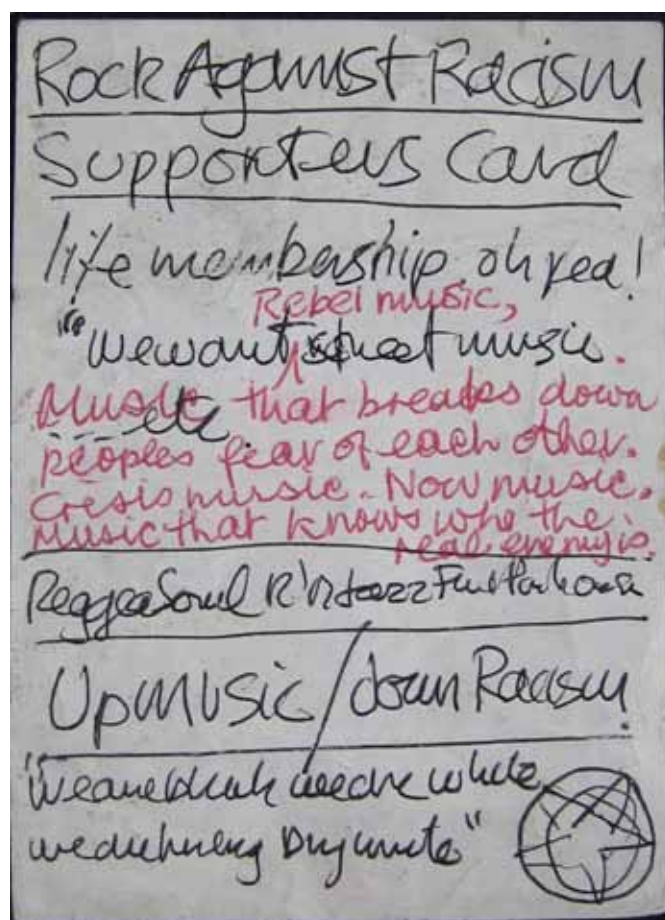 Rock Against Racism
Supporters Card
life membership. oh yea!
Rebel music,
"we want street music.
Music that breaks down
---etc.
peoples fear of each other.
Crisis music. Now music.
Music that knows who the
real enemy is.
Reggae Soul R'n Jazz Funk
Up MUSIC / down Racism!
"We are black we are white
we are Dynamite"